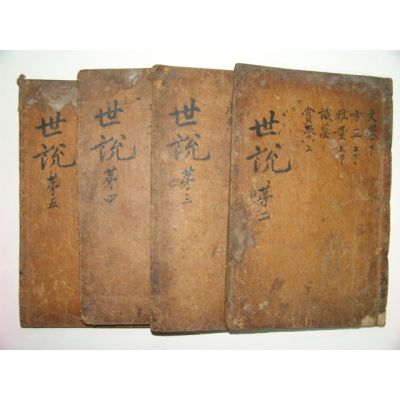 世說 第五
世說 第四
世說 第三
世說 第二
文學下
方正上下
雅量上下
識鑒
賞譽上